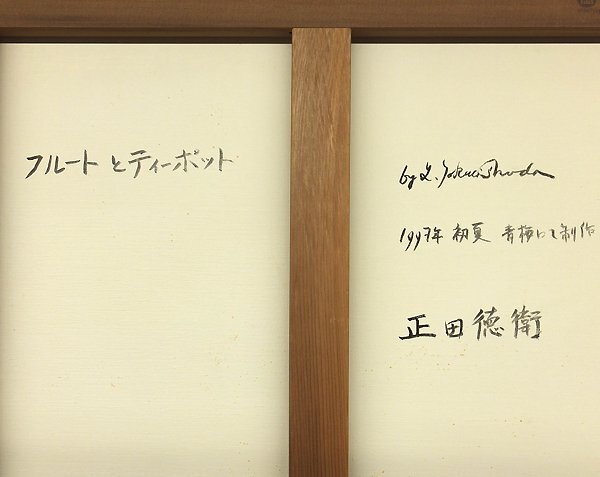 フルートとティーポット
by L. Tokue Shoda
1997年 初夏 青梅にて制作
正田徳衛